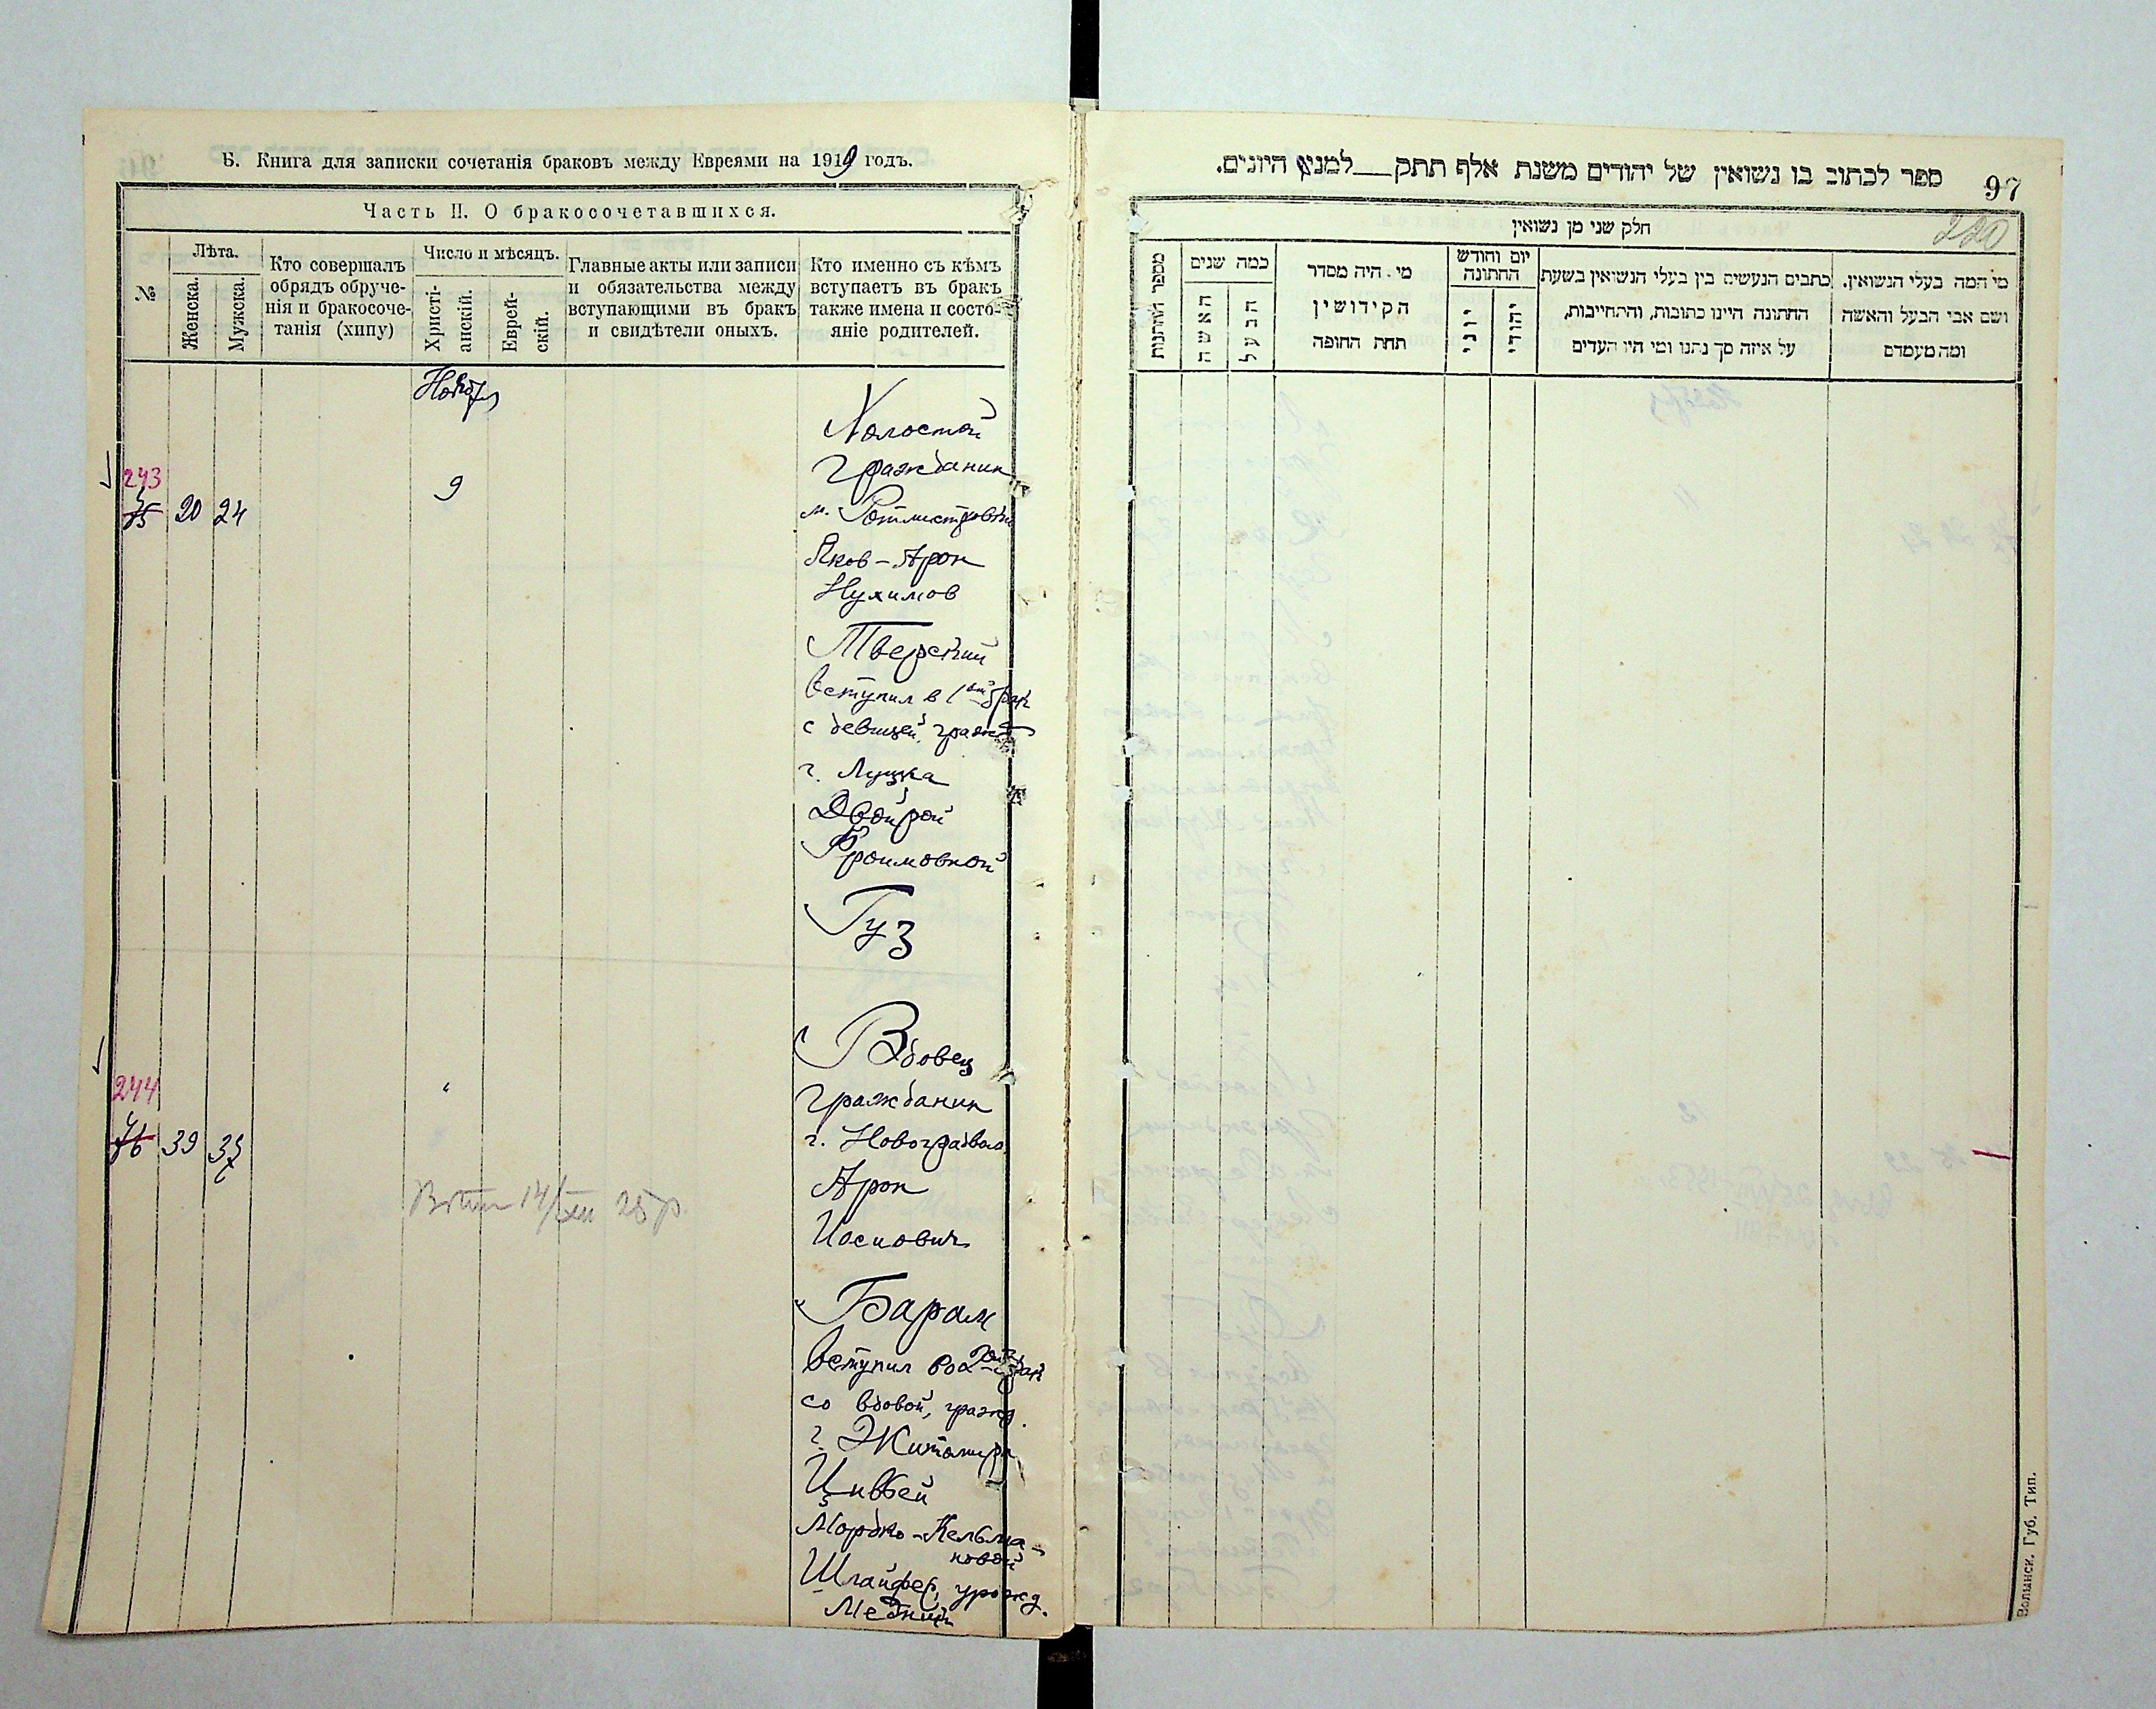 Б. Книга для записки сочетанія браковъ между Евреями на 1919 годъ.
Часть II. О бракосочетавшихся.
№
Лѣта.
Женска.
Мужска.
Кто совершалъ
обрядъ обруче-
нія и бракосоче-
танія (хипу)
Число и мѣсяцъ.
Христі-
анскій.
Еврей-
скій.
Главные акты или записи
и обязательства между
вступающими въ бракъ
и свидѣтели оныхъ.
Кто именно съ кѣмъ
вступаетъ въ бракъ
также имена и состо-
яніе родителей.
Ноябрь
Холостой
Гражданин
243
75 20 24
9
м. Ротмистровки
Яков-Арон
Нухимов
Тверский
вступил в 1ый брак
с девицей гражд
г. Луцка
Двойрой
Фроимовной
Гуз
Вдовец
244
"
Гражданин
76 39 37
г. Новоградвол.
Арон
14/XII 25 р.
Иосиович
Барам
вступил во 2ой брак
со вдовой, гражд.
г. Житомира
Цивьей
Мордко-Кельма-
новой
Шлайфер, урожд.
ספר לכתוב בו נשואין של יהודים משנת אלף תתק למנין היונים.
97
220
חלק שני מן נשואין
מספר החתונות
כמה שנים
האשה
הבעל
מי היה מסדר
הקידושין
תחת החופה
יום וחודש
החתונה
יוני
יהודי
כתבים הנעשים בין בעלי הנשואין בשעת
החתונה היינו כתובות, והתחייבות,
על איזה סך נתנו ומי היו העדים
מי המה בעלי הנשואין.
ושם אבי הבעל והאשה
ומה מעמדם
Волынск. Губ. Тип.